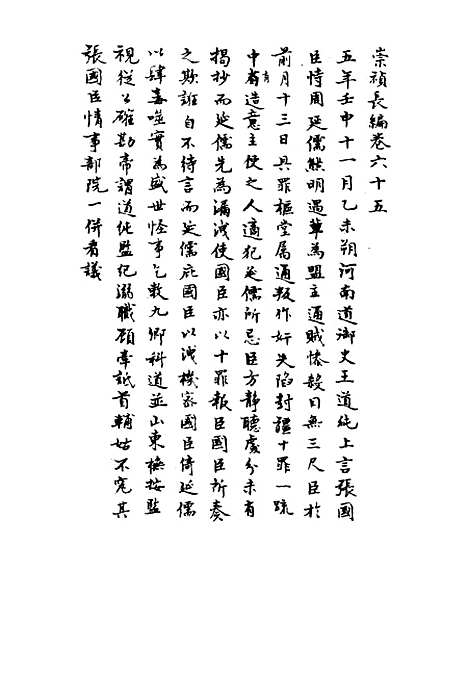 崇禎長編卷六十五
五年壬申十一月乙未朔河南道御史王道純上言張國
臣恃周延儒熊明遇輩為盟主通賊慘殺目無三尺臣於
前月十三日具罪樞堂屬通叛作奸失陷封疆十罪一疏
中有言造意主使之人適犯延儒所忌臣方靜聽處分未有
揭抄而延儒先為漏洩使國臣亦以十罪報臣國臣所奏
之欺誑自不待言而延儒庇國臣以洩機密國臣倚延儒
以肆毒噬實為盛世怪事乞敕九卿科道並山東撫按監
視從公確勘帝謂道純監紀溺職顧牽詆首輔姑不究其
張國臣情事部院一併看議